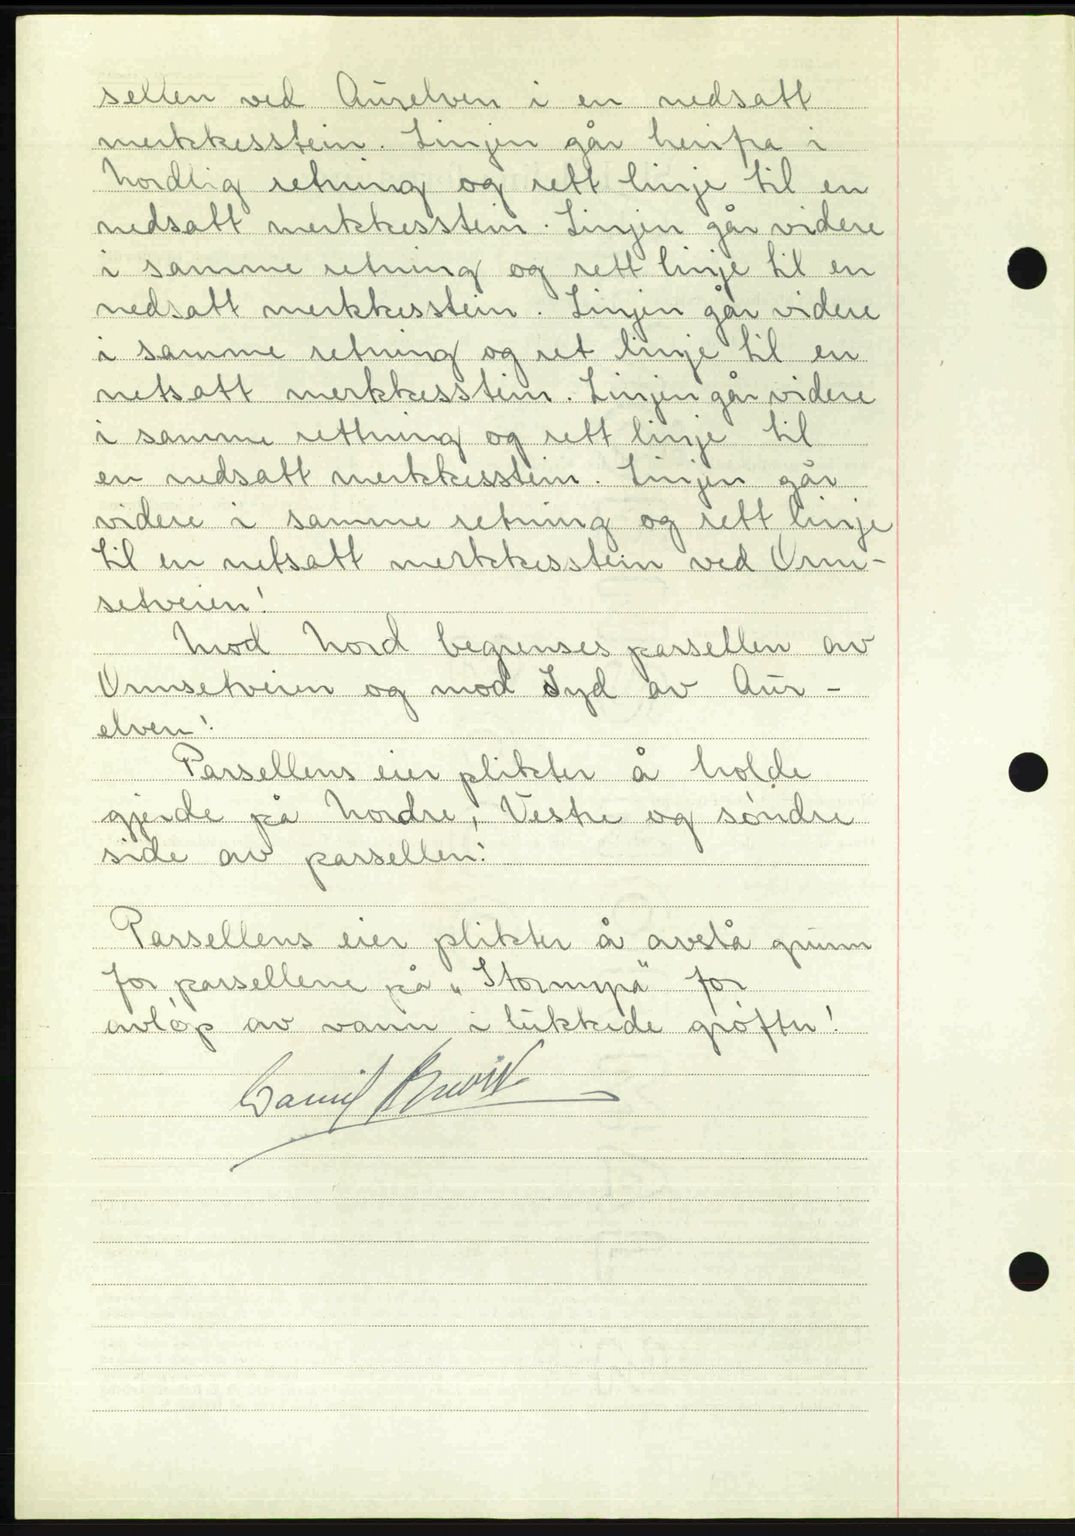 sellen ved Aurelven i en nedsatt
merkkesstein. Linjen går herifra i
Nordlig retning og rett linje til en
nedsatt merkkesstein. Linjen går videre
i samme retning og rett linje til en
nedsatt merkkesstein. Linjen går videre
i samme retning og ret linje til en
netsatt merkkesstein. Linjen går videre
i samme rettning og rett linje til
en nedsatt merkkesstein. Linjen går
videre i samme retning og rett linje
til en netsatt merkkesstein ved Orm-
setveien!
Mod Nord begrenses parsellen av
Ormsetveien og mod Syd av Aur-
elven!
Parsellens eier plikter å holde
gjerde på Nordre, Vestre og søndre
side av parsellen!
Parsellens eier plikter å avstå grunn
for parsellene på „Stormyra" for
avløp av vann i lukkede grøfter!